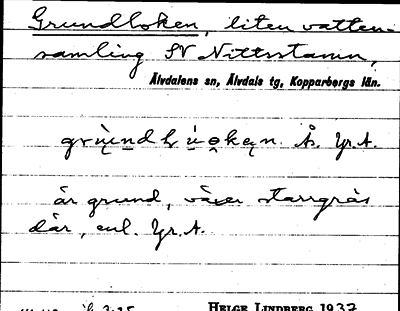 Grundhoken, liten vatten-
samling SV Nittsstamn,
Älvdalens sn, Älvdals tg, Kopparbergs län.
grùndh Å. Yr. A.
är grund, växer starrgräs
där, enl. Yr. A.
HELGE LINDBERG 1937